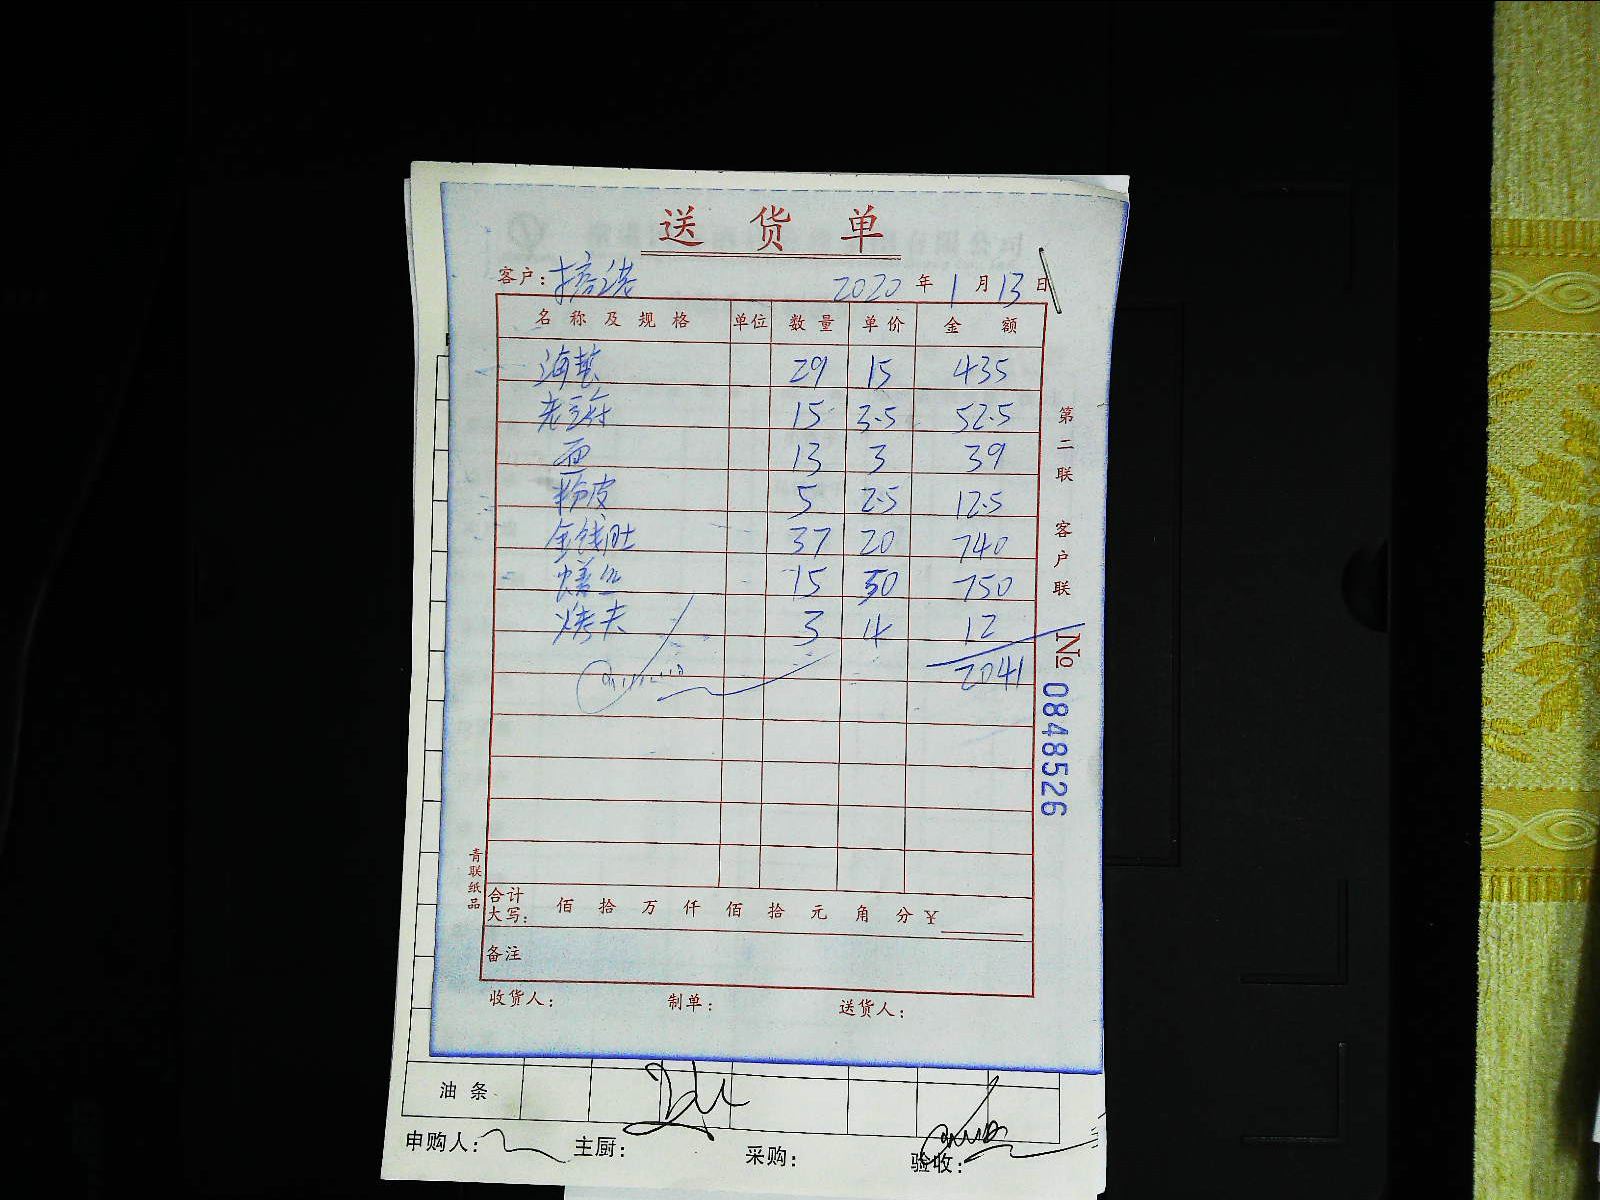 送货单
客户: 2020年1月13日
名称及规格 单位 数量 单价 金额
海蜇 29 15 435
老豆腐 15 3.5 52.5
面 13 3 39
粉皮 5 2.5 12.5
金钱肚 37 20 740
鳝丝 15 50 750
烤夫 3 4 12
2041
第二联 客户联
№ 0848526
青联纸品
合计大写: 佰 拾 万 仟 佰 拾 元 角 分 ¥
备注
收货人: 制单: 送货人:
油条
申购人: 主厨: 采购: 验收: